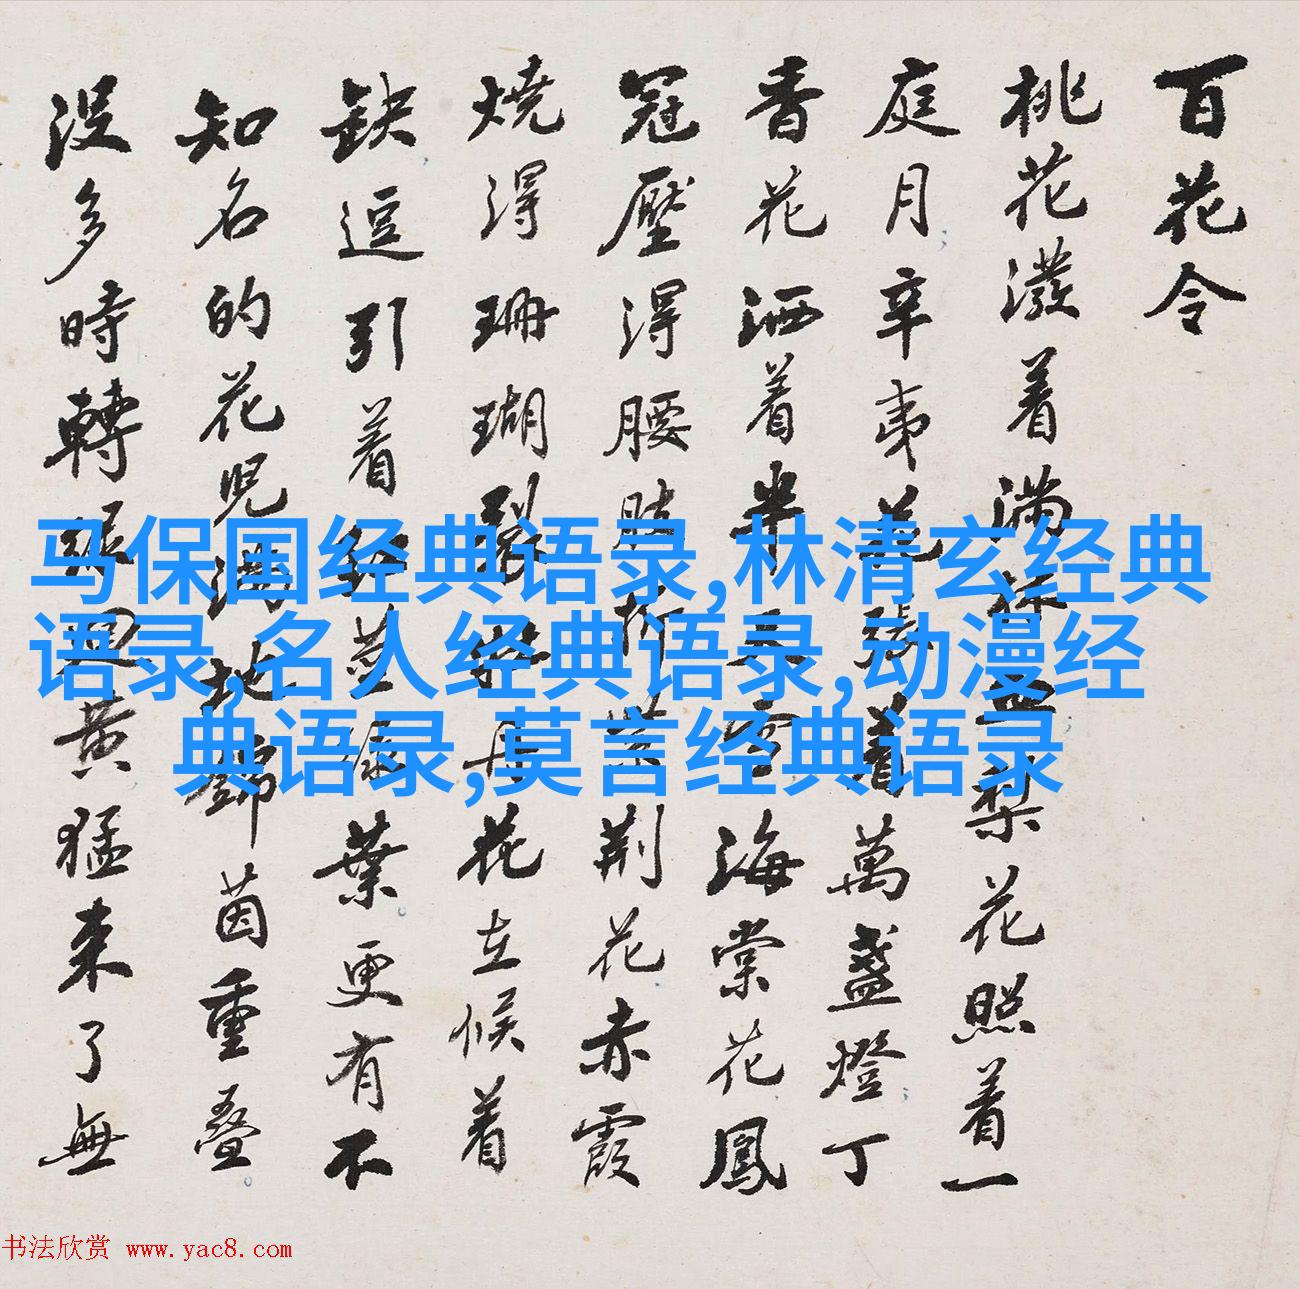 百花令
桃花潑着滿梨花照着一
庭月辛夷花張着萬盞燈丁
香花洒着半天雪海棠花鳳
冠壓得腰肢折紫荊花赤霞
燒得珊瑚裂牡丹花立候着
缺逗引着綠葉更有不
知名的花兒滿地錦茵重叠
沒多時轉黄猛来了無
马保国经典语录,林清玄经典
语录,名人经典语录,动漫经
典语录,莫言经典语录
书法欣赏 www.yac8.com